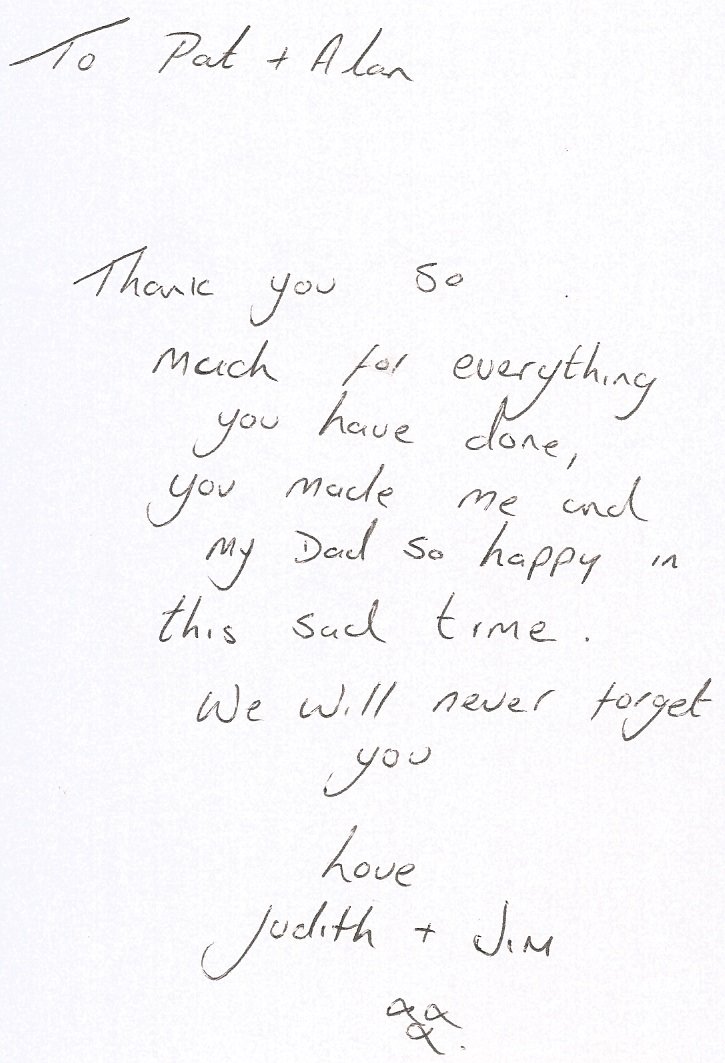 To Pat + Alan
Thank you so
much for everything
you have done,
you made me and
my Dad so happy in
this sad time.
We will never forget
you
Love
Judith + Jim
xx
x.